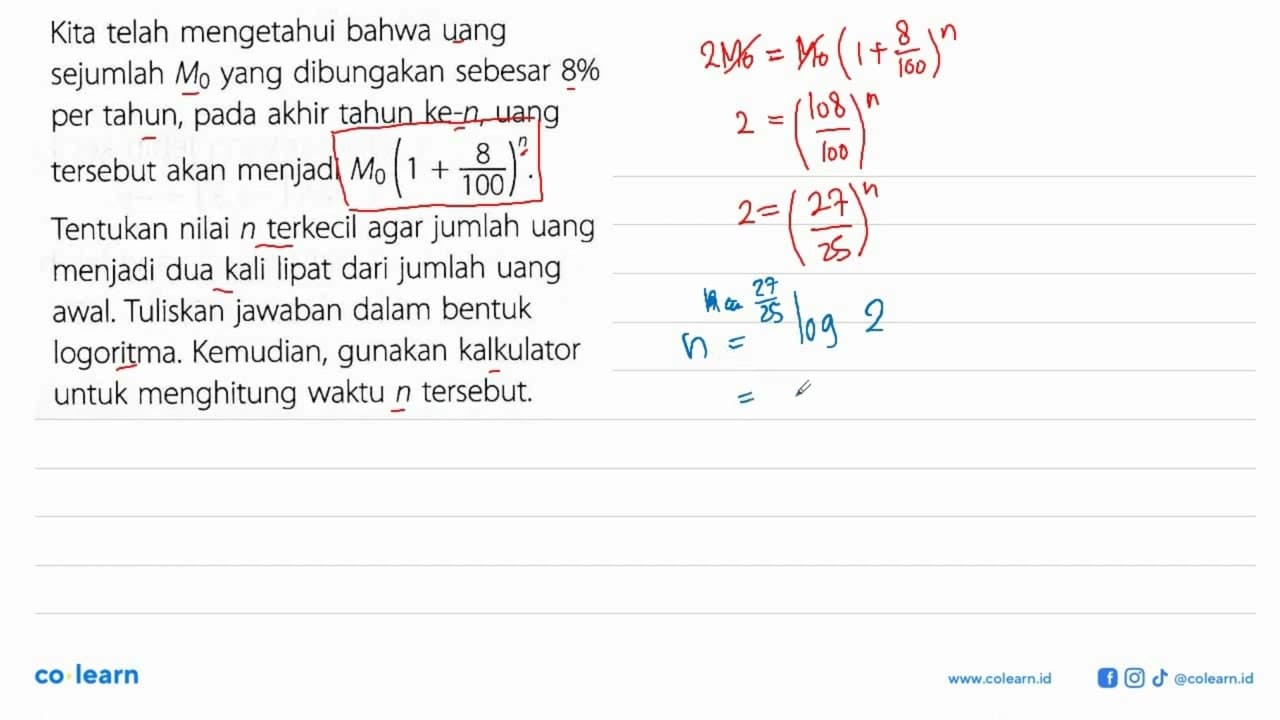 Kita telah mengetahui bahwa uang
sejumlah M₀ yang dibungakan sebesar 8%
per tahun, pada akhir tahun ke-n, uang
tersebut akan menjadi M₀(1 + 8/100)ⁿ.
Tentukan nilai n terkecil agar jumlah uang
menjadi dua kali lipat dari jumlah uang
awal. Tuliskan jawaban dalam bentuk
logoritma. Kemudian, gunakan kalkulator
untuk menghitung waktu n tersebut.
2M₀ = M₀(1 + 8/100)ⁿ
2 = (108/100)ⁿ
2 = (27/25)ⁿ
n = ²⁷/²⁵ log 2
=
co learn
www.colearn.id
@colearn.id